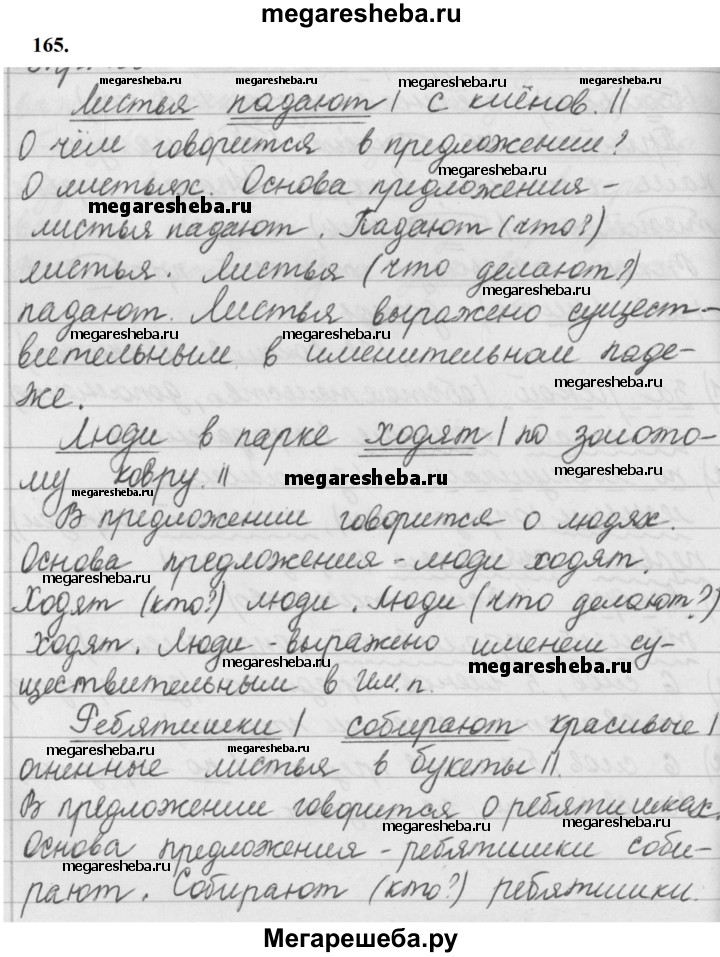 megaresheba.ru
165.
Листья падают | с клёнов. ||
О чём говорится в предложении?
О листьях. Основа предложения -
листья падают. Падают (что?)
листья. Листья (что делают?)
падают. Листья выражено сущест-
вительным в именительном паде-
же.
Люди в парке ходят | по золото-
му ковру. ||
В предложении говорится о людях.
Основа предложения - люди ходят.
Ходят (кто?) люди. Люди (что делают?)
ходят. Люди - выражено именем су-
ществительным в Им. п.
Ребятишки | собирают красивые |
огненные листья в букеты ||.
В предложении говорится о ребятишках.
Основа предложения - ребятишки соби-
рают. Собирают (кто?) ребятишки.
Мегарешеба.ру